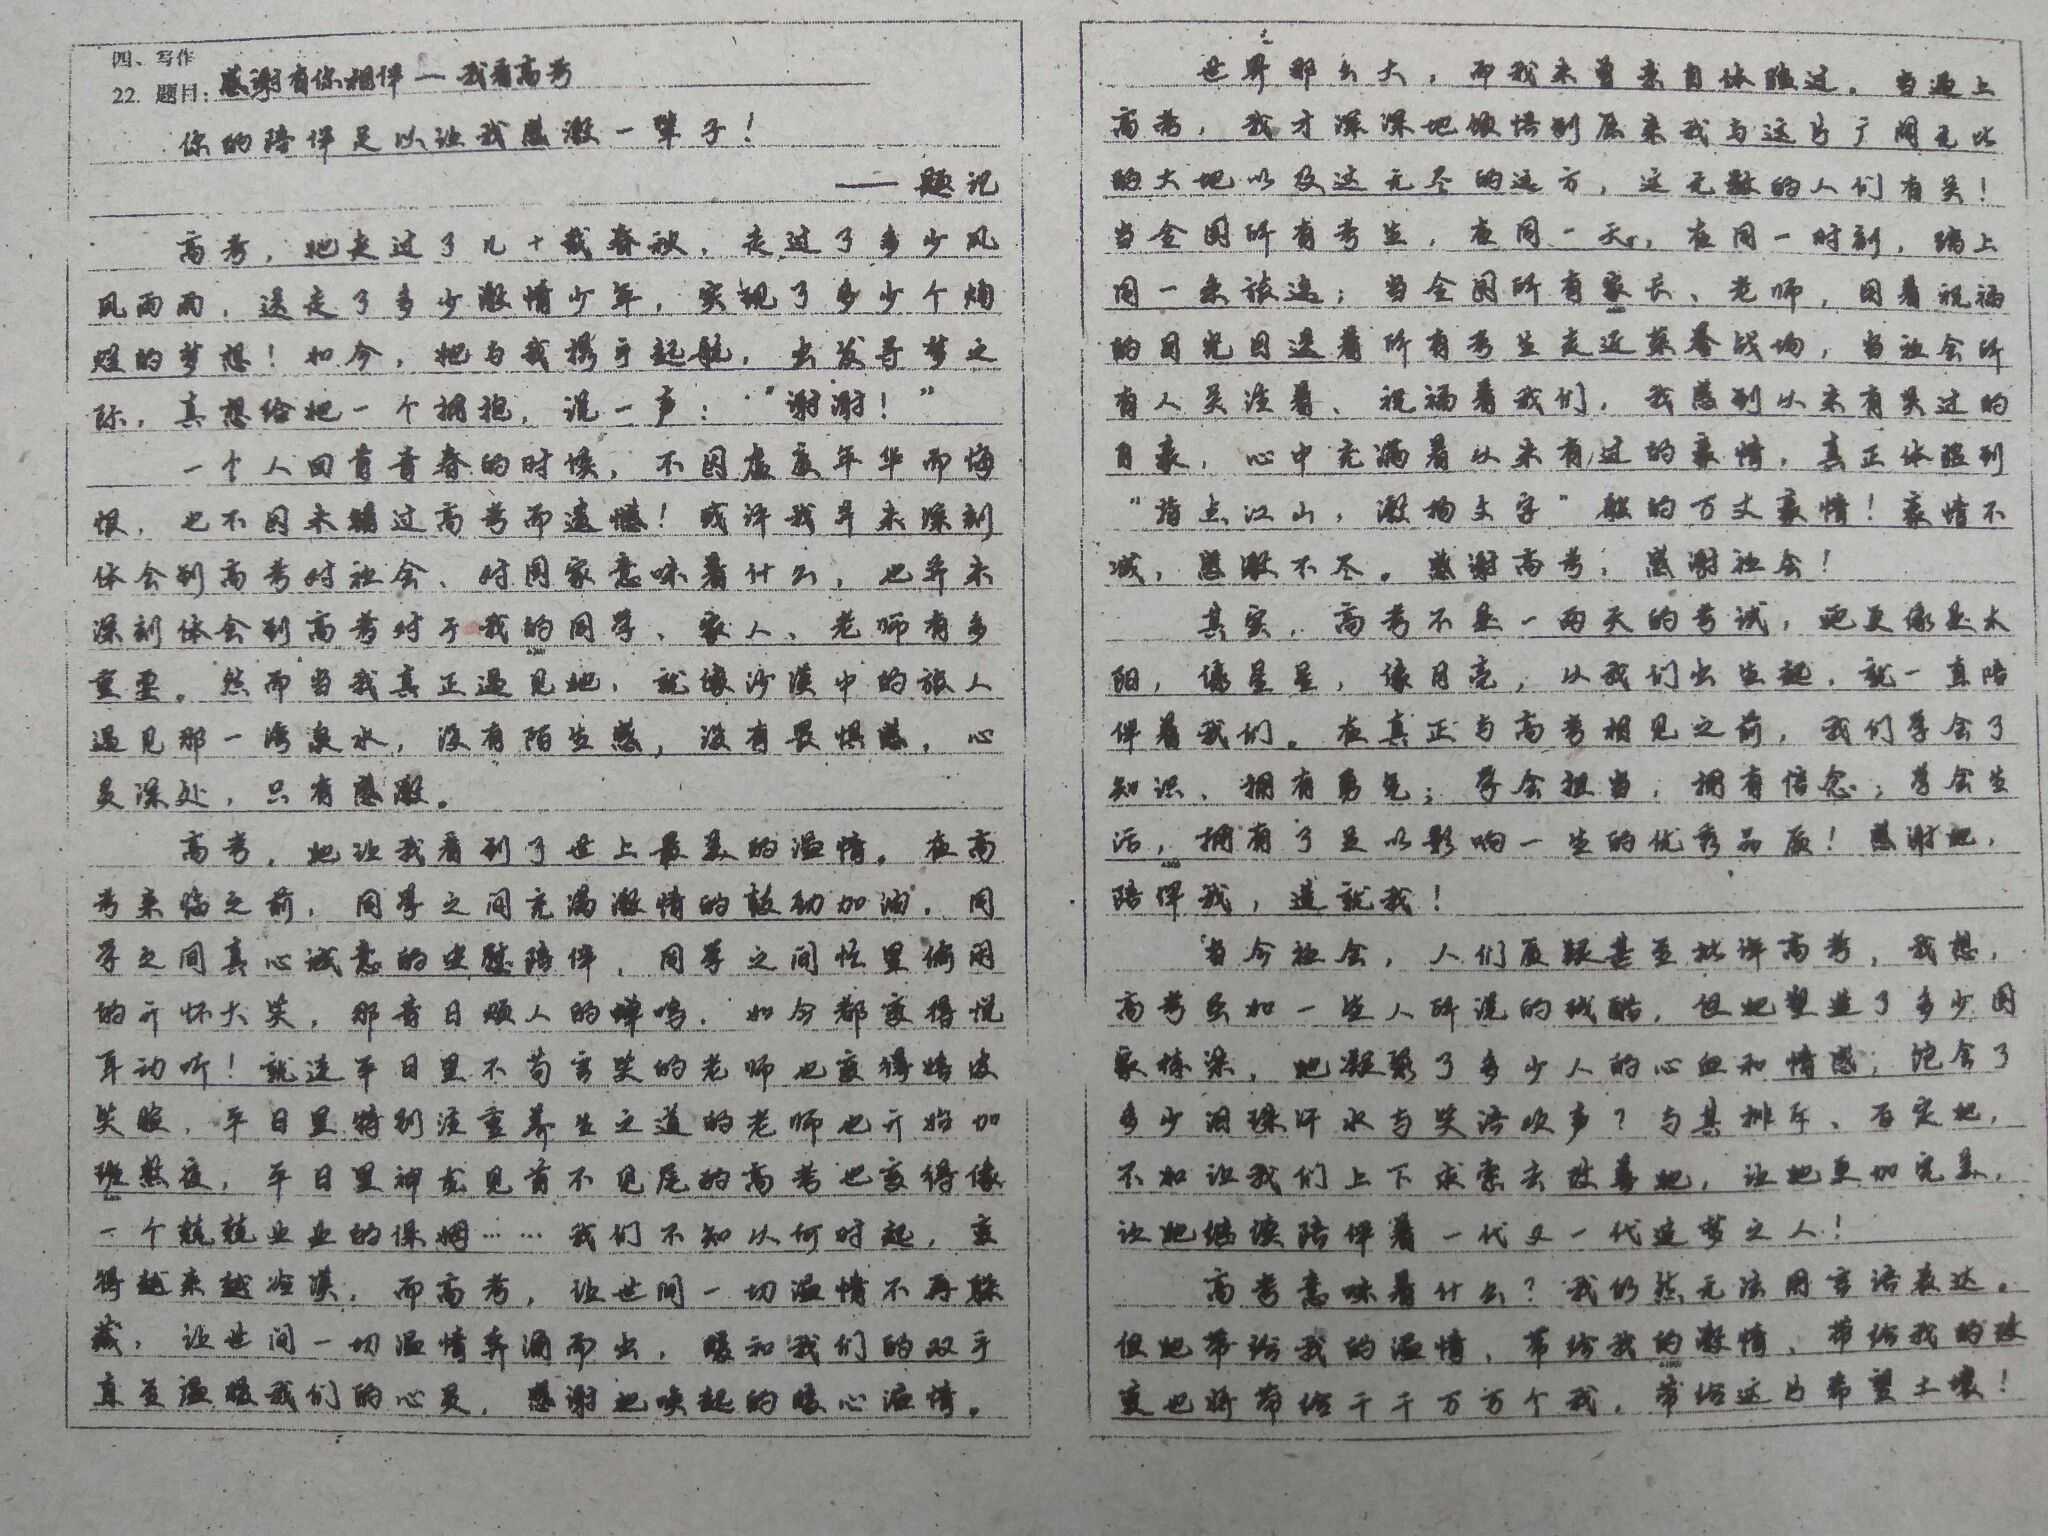 四、写作
22. 题目：感谢有你相伴—我看高考
你的陪伴足以让我感激一辈子！
——题记
高考，她走过了几十载春秋，走过了多少风
风雨雨，送走了多少激情少年，实现了多少个炯
煌的梦想！如今，她与我携手起航，出发寻梦之
际，真想给她一个拥抱，说一声：“谢谢！”
一个人回首青春的时候，不因虚度年华而悔
恨，也不因未错过高考而遗憾！或许我并未深刻
体会到高考对社会、对国家意味着什么，也并未
深刻体会到高考对于我的同学、家人、老师有多
重要。然而当我真正遇见她，就像沙漠中的旅人
遇见那一湾泉水，没有陌生感，没有畏惧感，心
灵深处，只有感激。
高考，她让我看到了世上最美的温情。在高
考来临之前，同学之间充满激情的鼓劲加油，同
学之间真心诚意的安慰陪伴，同学之间忙里偷闲
的开怀大笑，那昔日烦人的蝉鸣，如今都变得悦
耳动听！就连平日里不苟言笑的老师也变得嬉皮
笑脸，平日里特别注重养生之道的老师也开始加
班熬夜，平日里神龙见首不见尾的高考也变得像
一个兢兢业业的保姆……我们不知从何时起，变
得越来越冷漠，而高考，让世间一切温情不再躲
藏，让世间一切温情奔涌而出，暖和我们的双手
直至温暖我们的心灵，感谢她唤起的暖心温情。
世界那么大，而我未曾亲自体验过。当遇上
高考，我才深深地领悟到原来我与这片广阔无比
的大地以及这无尽的远方，这无数的人们有关！
当全国所有考生，在同一天，在同一时刻，踏上
同一条旅途；当全国所有家长、老师，用着祝福
的目光目送着所有考生走近菜卷战场，当社会所
有人关注着、祝福着我们，我感到从未有关过的
自豪，心中充满着从未有过的豪情，真正体验到
“指点江山，激扬文字”般的万丈豪情！豪情不
减，感激不尽。感谢高考；感谢社会！
其实，高考不是一两天的考试，她更像是太
阳，像星星，像月亮，从我们出生起，就一直陪
伴着我们。在真正与高考相见之前，我们学会了
知识、拥有勇气；学会担当，拥有信念；学会生
活，拥有了足以影响一生的优秀品质！感谢她，
陪伴我，造就我！
当今社会，人们质疑甚至批评高考，我想，
高考虽如一些人所说的残酷，但她塑造了多少国
家栋梁，她凝聚了多少人的心血和情感；饱含了
多少泪珠汗水与笑语欢声？与其排斥、否定她，
不如让我们上下求索去改善她，让她更加完美，
让她继续陪伴着一代又一代造梦之人！
高考意味着什么？我仍然无法用言语表达。
但她带给我的温情、带给我的激情、带给我的改
变也将带给千千万万个我，带给这片希望土壤！